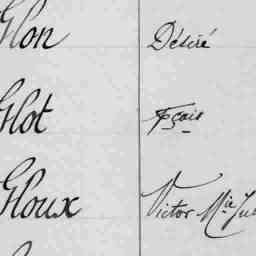 Glon Désiré
Glot Fçois
Gloux Victor Mie Ju